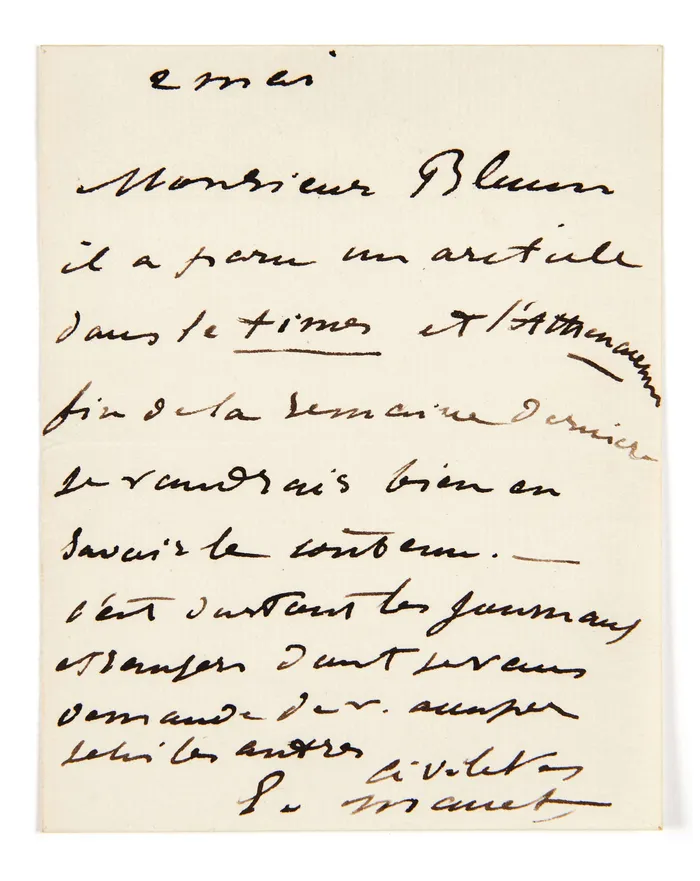 2 mai
Monsieur Blum
il a paru un article
dans le times et l'Athenaeum
fin de la semaine dernière
je voudrais bien en
savoir le contenu. —
c'est surtout les journaux
etrangers dont je vous
demande de v. occuper
je lis les autres
civilités
E. Manet